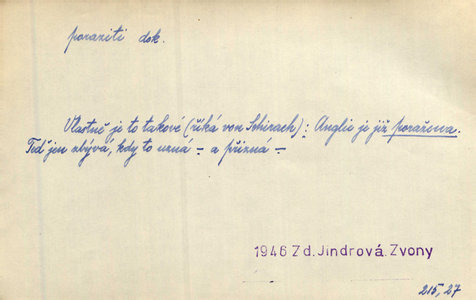 poraziti dok.
Vlastně je to takové (říká von Schirach): Anglie je již poražena.
Teď jen zbývá, kdy to uzná – a přizná –
1946 Zd. Jindrová. Zvony
215, 27